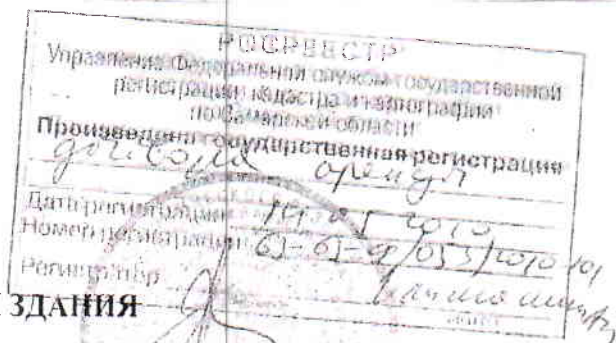 РОСРЕЕСТР
Управление Федеральной службы государственной
регистрации кадастра и картографии
по Самарской области
Произведена государственная регистрация
договора аренды
Дата регистрации 2010
Номер регистрации 63-63-
Регистратор
ЗДАНИЯ